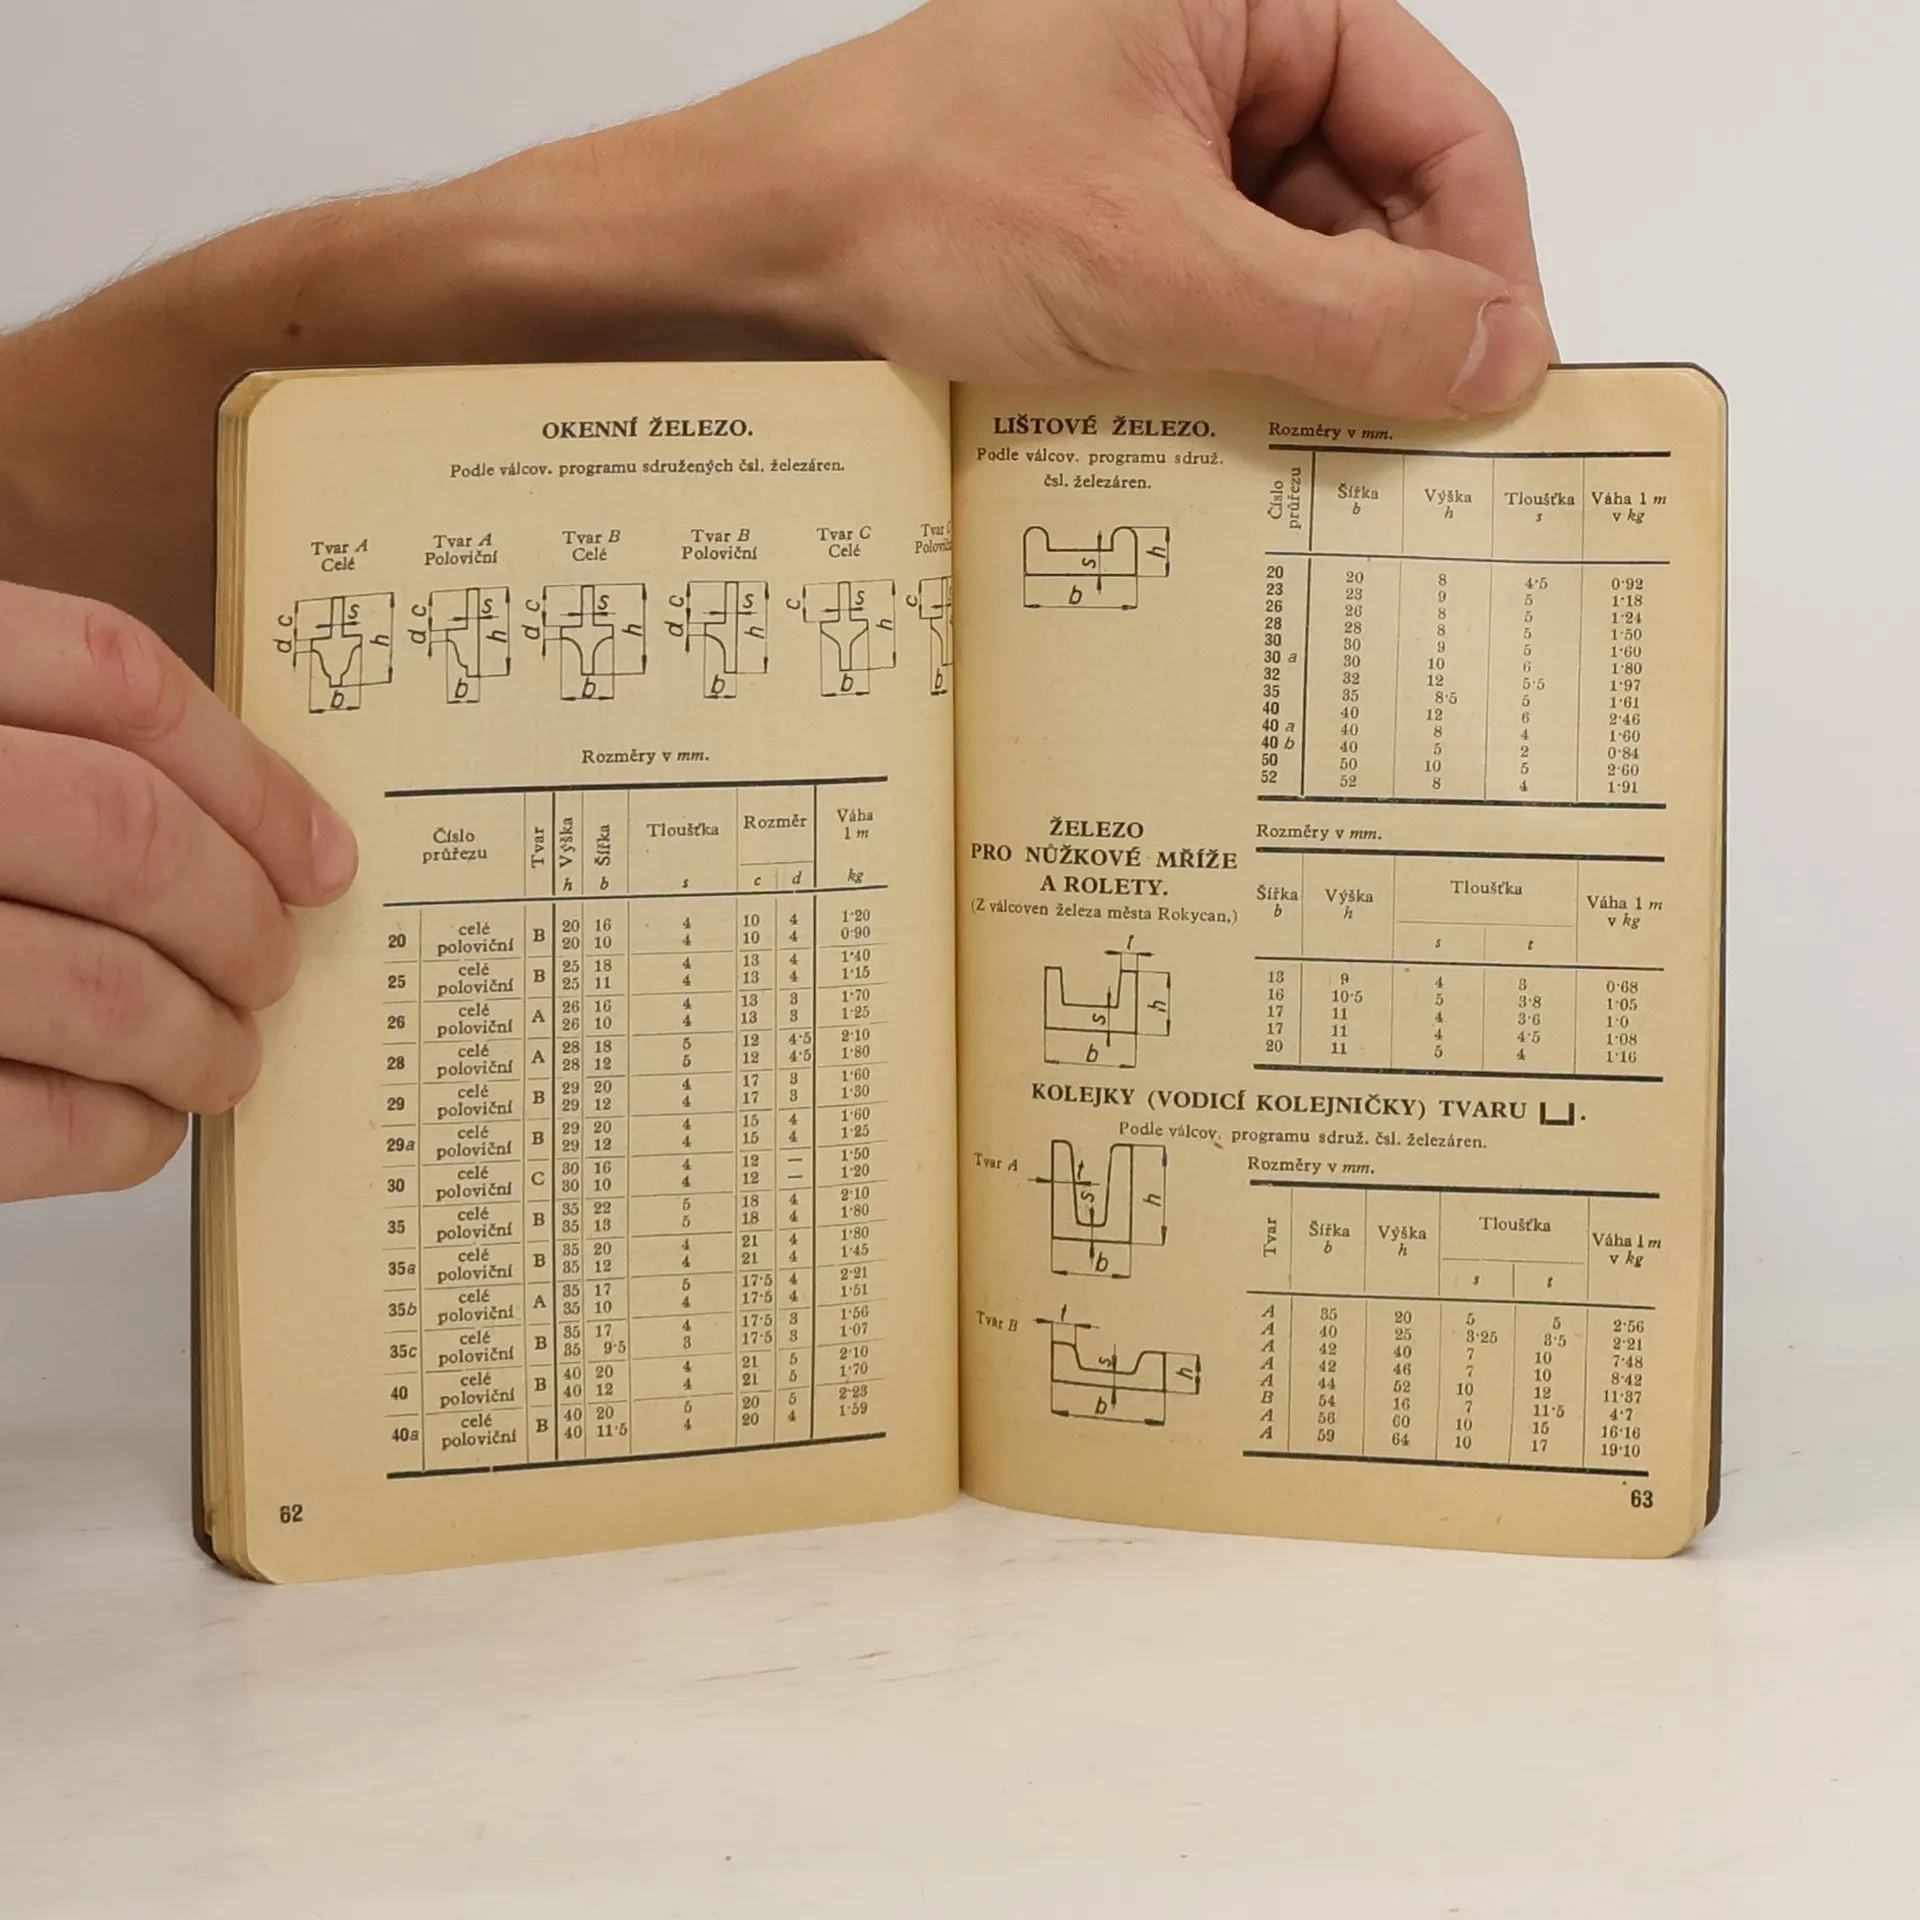 OKENNÍ ŽELEZO.
Podle válcov. programu sdružených čsl. železáren.
Tvar A Celé
Tvar A Poloviční
Tvar B Celé
Tvar B Poloviční
Tvar C Celé
Tvar
c d s h b
c d s h b
c d s h b
c d s h b
c s h b
c b
Rozměry v mm.
Číslo průřezu Tvar Výška h Šířka b Tloušťka s Rozměr c d Váha 1 m kg
20 celé B 20 16 4 10 4 1·20
poloviční 20 10 4 10 4 0·90
25 celé B 25 18 4 13 4 1·40
poloviční 25 11 4 13 4 1·15
26 celé A 26 16 4 13 3 1·70
poloviční 26 10 4 13 3 1·25
28 celé A 28 18 5 12 4·5 2·10
poloviční 28 12 5 12 4·5 1·80
29 celé B 29 20 4 17 3 1·60
poloviční 29 12 4 17 3 1·30
29a celé B 29 20 4 15 4 1·60
poloviční 29 12 4 15 4 1·25
30 celé C 30 16 4 12 — 1·50
poloviční 30 10 4 12 — 1·20
35 celé B 35 22 5 18 4 2·10
poloviční 35 13 5 18 4 1·80
35a celé B 35 20 4 21 4 1·80
poloviční 35 12 4 21 4 1·45
35b celé A 35 17 5 17·5 4 2·21
poloviční 35 10 4 17·5 4 1·51
35c celé B 35 17 4 17·5 3 1·56
poloviční 35 9·5 3 17·5 3 1·07
40 celé B 40 20 4 21 5 2·10
poloviční 40 12 4 21 5 1·70
40a celé B 40 20 5 20 5 2·23
poloviční 40 11·5 4 20 4 1·59
62
LIŠTOVÉ ŽELEZO.
Podle válcov. programu sdruž.
čsl. železáren.
s h b
Rozměry v mm.
Číslo průřezu Šířka b Výška h Tloušťka s Váha 1 m v kg
20 20 8 4·5 0·92
23 23 9 5 1·18
26 26 8 5 1·24
28 28 8 5 1·50
30 30 9 5 1·60
30 a 30 10 6 1·80
32 32 12 5·5 1·97
35 35 8·5 5 1·61
40 40 12 6 2·46
40 a 40 8 4 1·60
40 b 40 5 2 0·84
50 50 10 5 2·60
52 52 8 4 1·91
ŽELEZO
PRO NŮŽKOVÉ MŘÍŽE
A ROLETY.
(Z válcoven železa města Rokycan,)
t s h b
Rozměry v mm.
Šířka b Výška h Tloušťka s t Váha 1 m v kg
13 9 4 3 0·68
16 10·5 5 3·8 1·05
17 11 4 3·6 1·0
17 11 4 4·5 1·08
20 11 5 4 1·16
KOLEJKY (VODICÍ KOLEJNIČKY) TVARU
Podle válcov. programu sdruž. čsl. železáren.
Tvar A
t s h b
Tvar B
t s h b
Rozměry v mm.
Tvar Šířka b Výška h Tloušťka s t Váha 1 m v kg
A 35 20 5 5 2·56
A 40 25 3·25 3·5 2·21
A 42 40 7 10 7·48
A 42 46 7 10 8·42
A 44 52 10 12 11·37
B 54 16 7 11·5 4·7
A 56 60 10 15 16·16
A 59 64 10 17 19·10
63